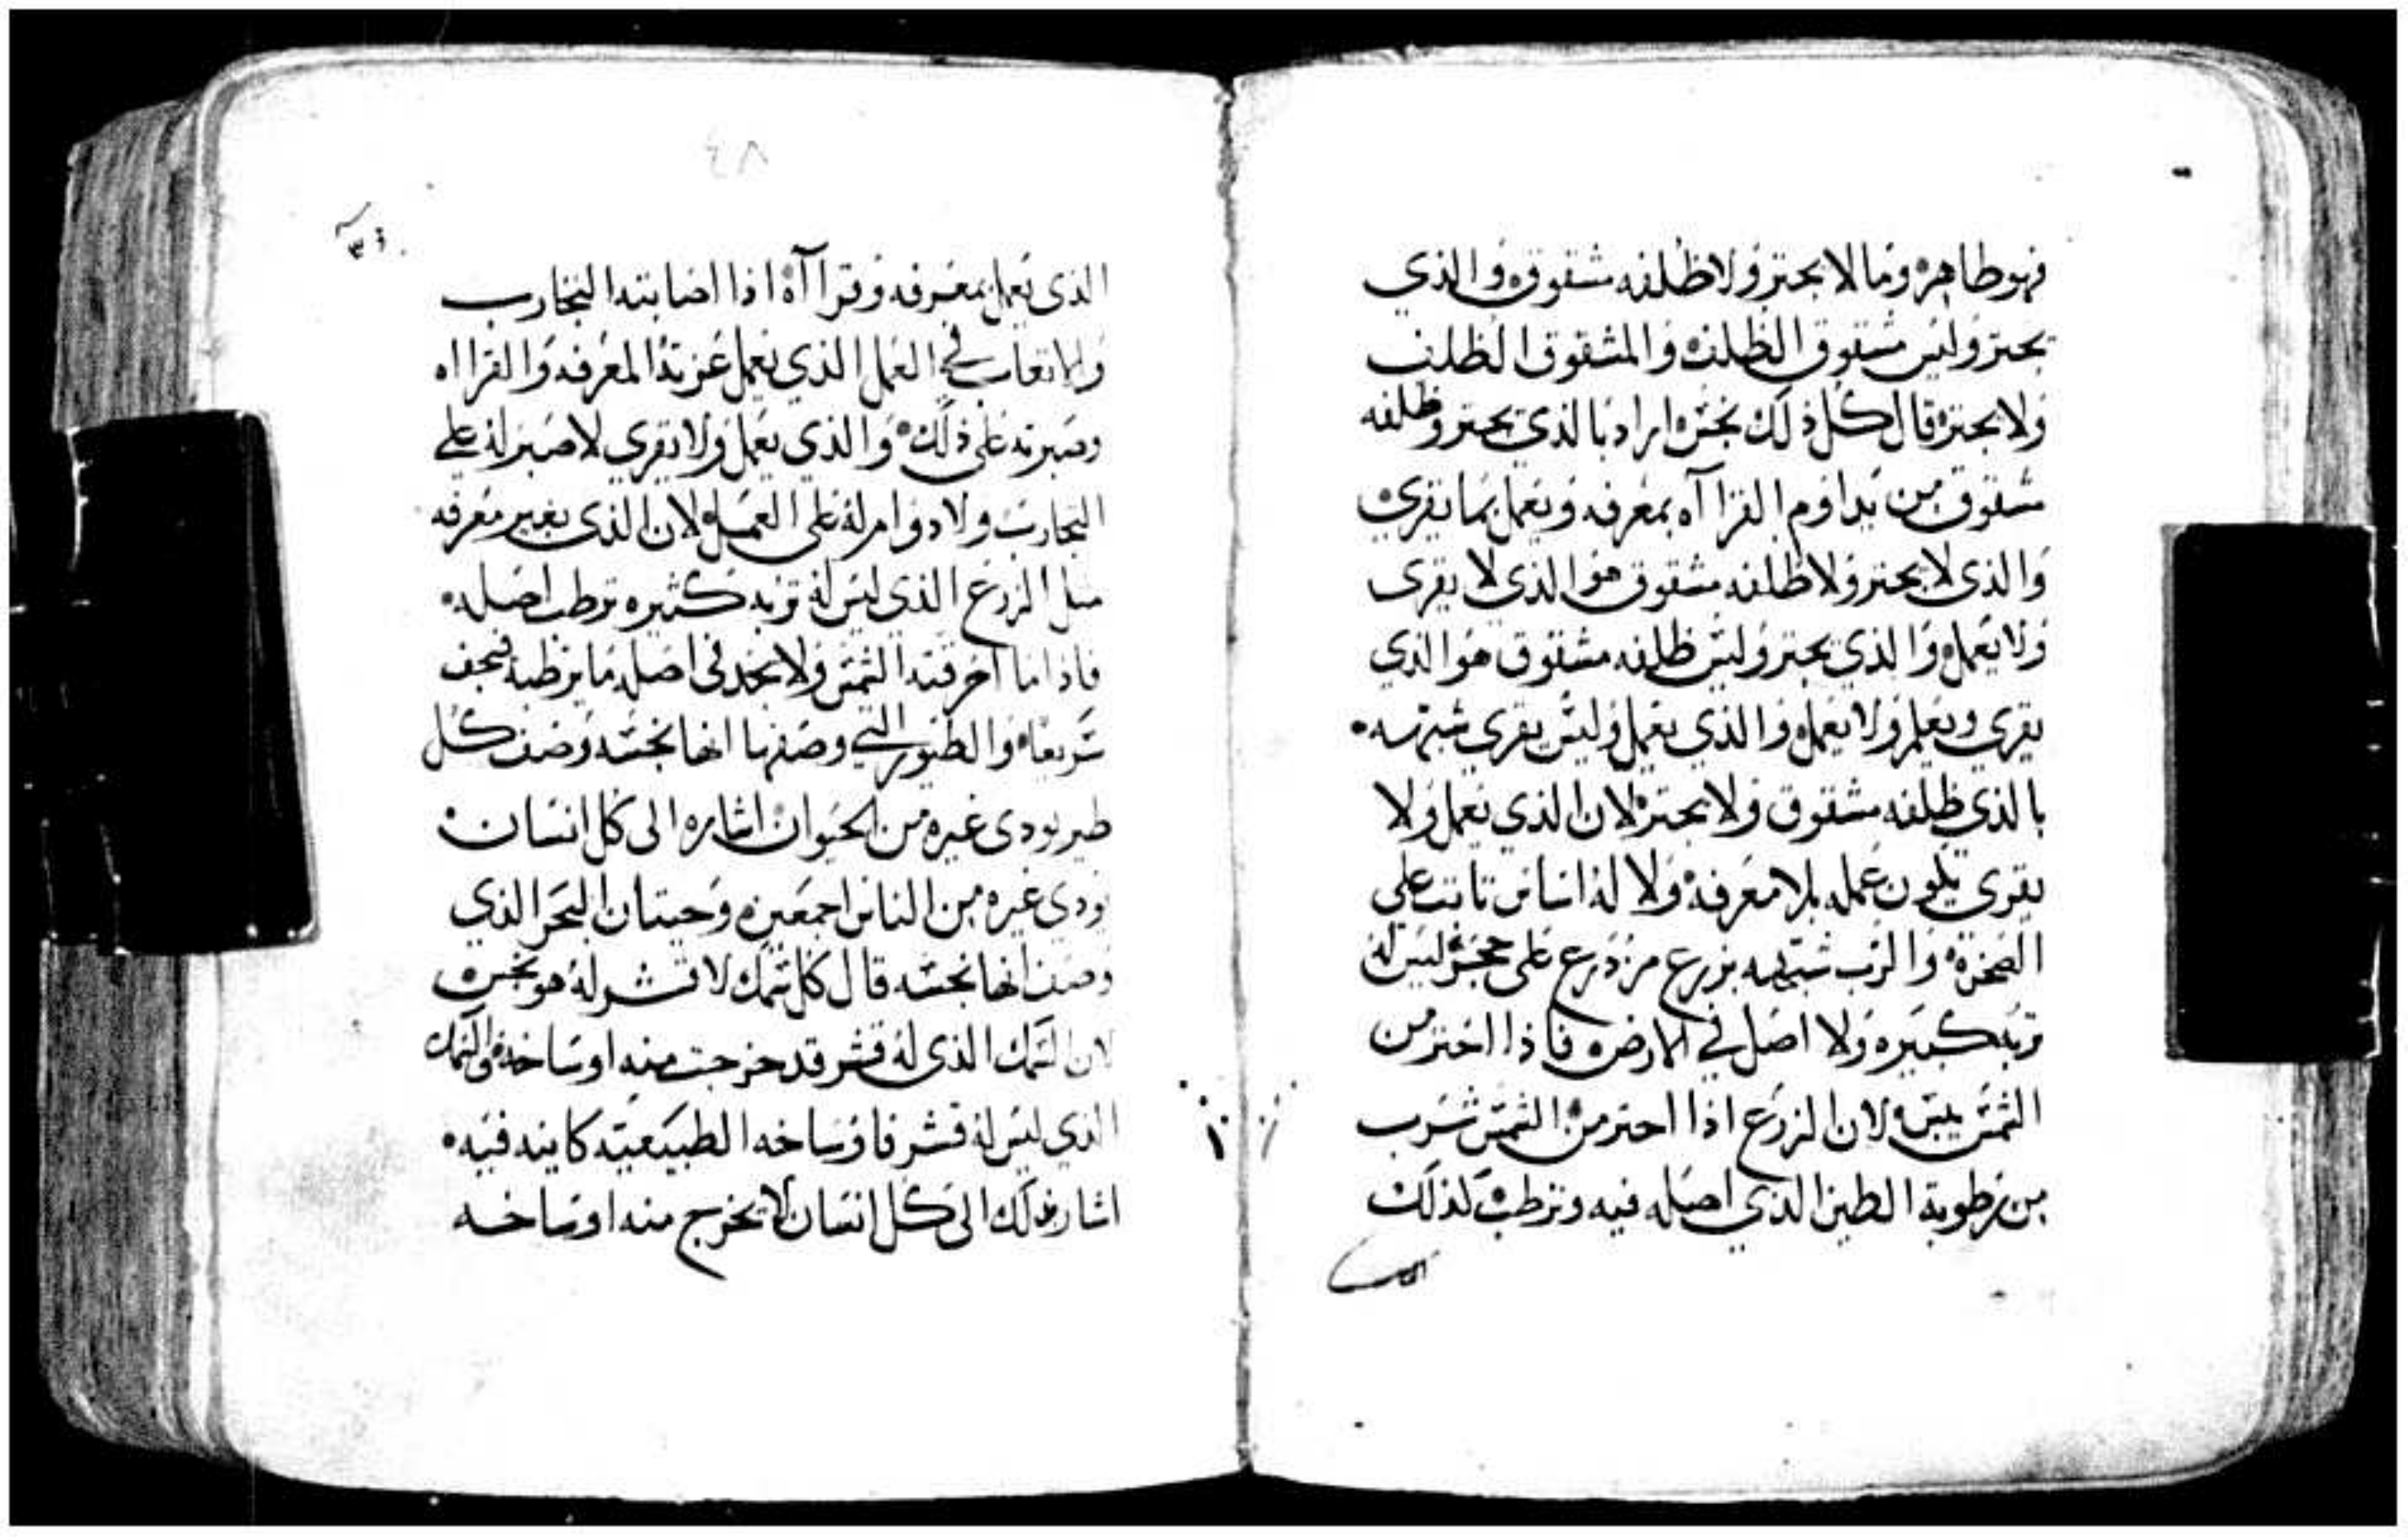 فهو طاهره وما لا يجتر ولا ظلفه مشقوق والذي
يجتر وليس مشقوق الظلف والمشقوق الظلف
ولا يجتر قال كل ذلك نجس اراد بالذي يجتر وظلفه
مشقوق من يداوم القرااه بمعرفه ويعمل بما يقري
والذي لا يجتر ولا ظلفه مشقوق هو الذي لا يقري
ولا يعمل والذي يجتر وليس ظلفه مشقوق هو الذي
يقري ويعلم ولا يعمل والذي يعمل وليس يقري شبهه
بالذي ظلفه مشقوق ولا يجتر لان الذي يعمل ولا
يقري يكون عمله بلا معرفه ولا له اساس تابت علي
الصخره والرب شبهه بزرع مزدرع على حجر ليس له
تربه كبيره ولا اصل في الارض فاذا احتر من
الشمس يبس لان الزرع اذا احتر من الشمس شرب
من رطوبة الطين الذي اصله فيه وترطب كذلك
٧٤
الذي يعمل بمعرفه وقرااه اذا اصابته التجارب
والاتعاب في العمل الذي يعمل عزته المعرفه والقرااه
وصبرته على ذلك والذي يعمل ولا يقري لا صبر له علي
التجارب ولا دوام له على العمل لان الذي بغير معرفه
متل الزرع الذي ليس له تربه كثيره ترطب اصله
فاذا ما احرقته الشمس ولا يجد في اصله ما يرطبه فيجف
سريعا والطيور التي وصفها انها نجسه وصف كل
طير يودي غيره من الحيوان اشاره الى كل انسان
يودي غيره من الناس اجمعين وحيتان البحر الذي
وصف انها نجسه قال كل سمك لا قشر له هو نجس
لان السمك الذي له قشر قد خرجت منه اوساخه والسمك
الذي ليس له قشر فاوساخه الطبيعيه كاينه فيه
اشار بذلك الى كل انسان لا يخرج منه اوساخه